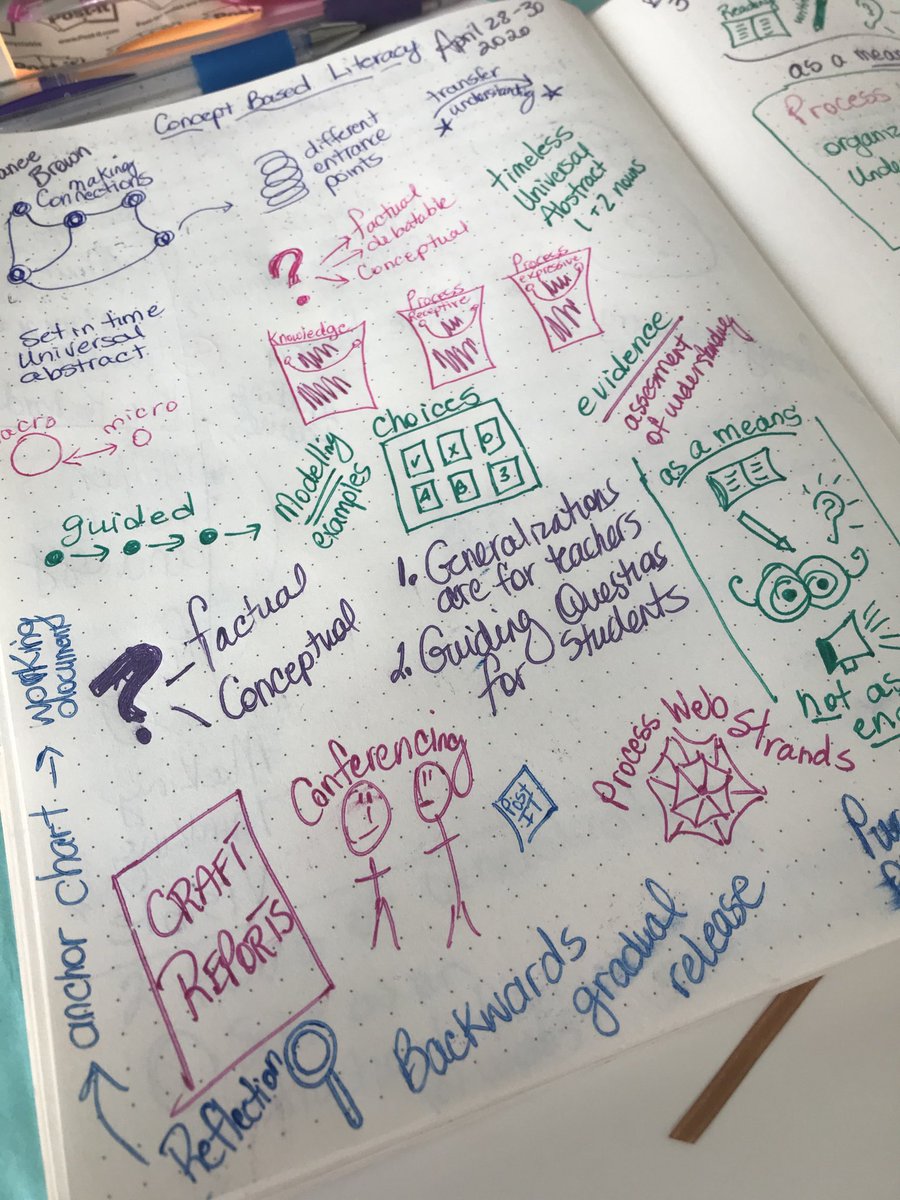 Post-it
Concept Based Literacy
April 28-30
2020
Brown
making
Connections
different
entrance
points
transfer
understanding
timeless
Universal
Abstract
1 + 2 nouns
?
factual
debatable
Conceptual
Set in time
Universal
abstract
Knowledge
Process
Receptive
Process
expressive
micro
evidence
assesment
of understanding
guided
Modelling
examples
choices
as a means
?
not as
?
factual
Conceptual
1. Generalizations
are for teachers
2. Guiding Questions
for students
anchor chart → working
documents
Conferencing
Post
IT
Process Web
Strands
CRAFT
REPORTS
Reflection
Backwards
gradual
release
Reading
as a
Process